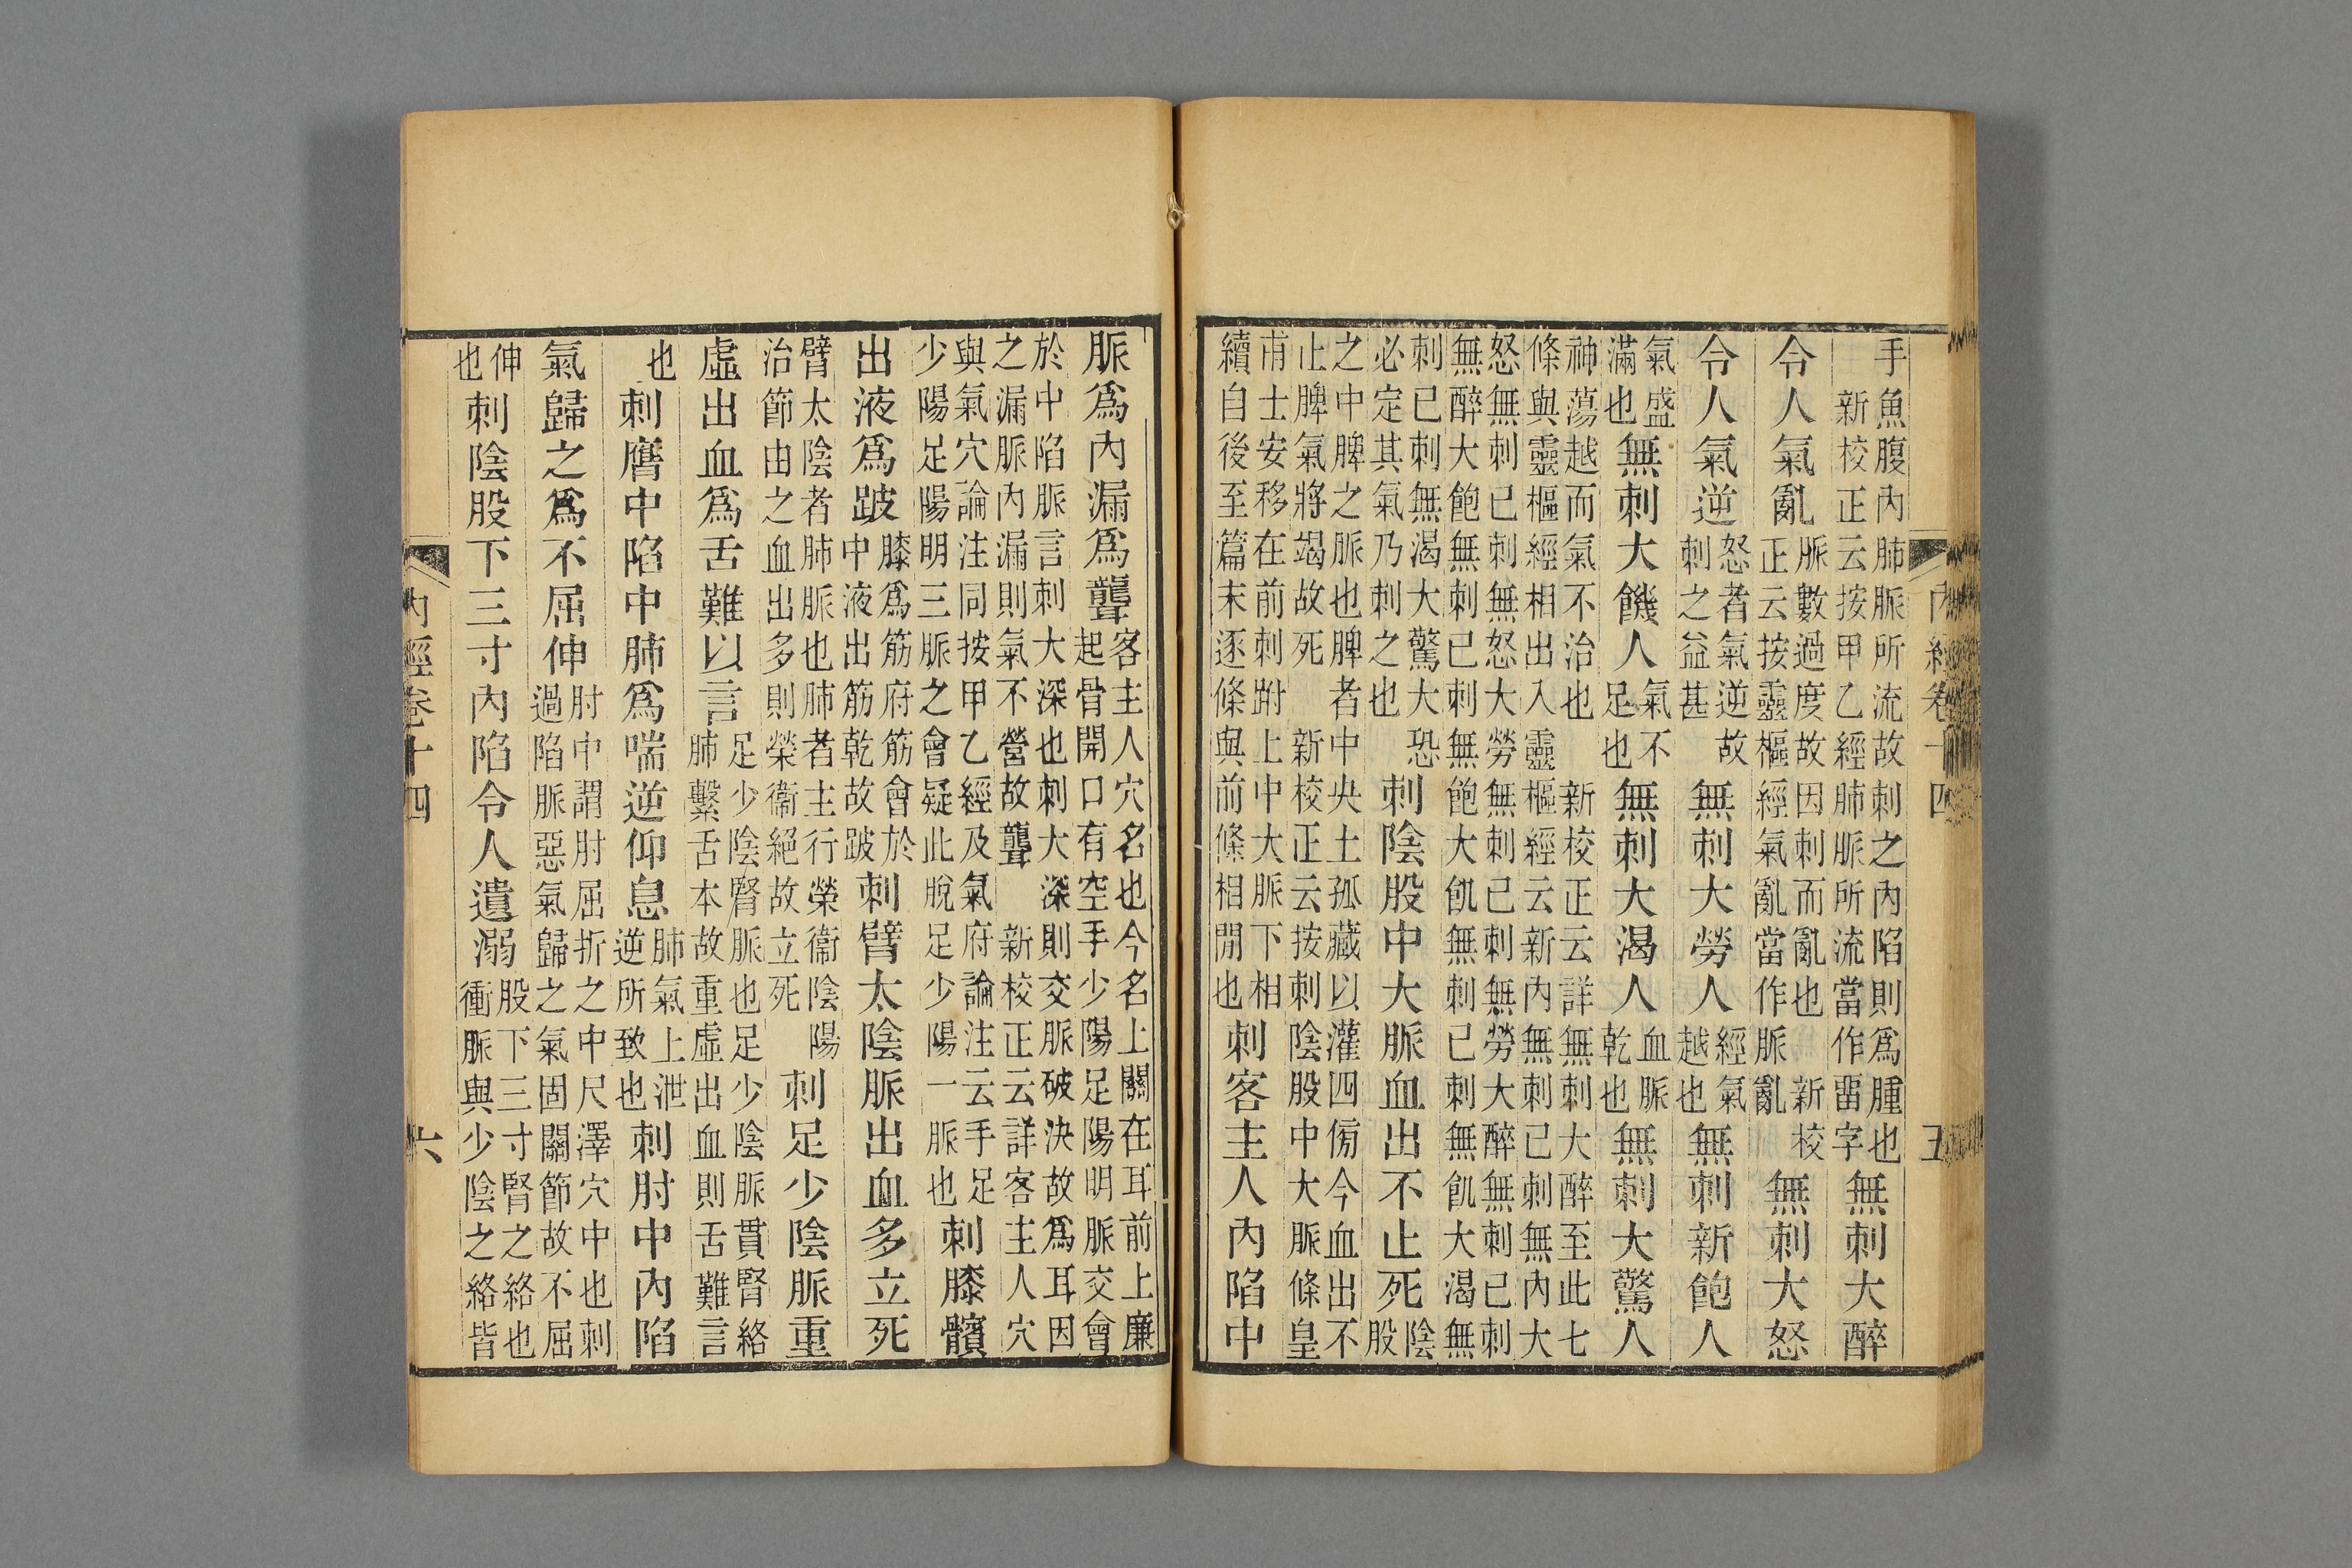 內經卷十四 五
手魚腹內肺脈所流故刺之內陷則爲腫也新校正云按甲乙經肺脈所流當作畱字無刺大醉
令人氣亂脈數過度故因刺而亂也新校正云按靈樞經氣亂當作脈亂無刺大怒
令人氣逆怒者氣逆故刺之益甚無刺大勞人經氣越也無刺新飽人
氣盛滿也無刺大饑人氣不足也無刺大渴人血脈乾也無刺大驚人
神蕩越而氣不治也新校正云詳無刺大醉至此七條與靈樞經相出入靈樞經云新內無刺已刺無內大
怒無刺已刺無怒大勞無刺已刺無勞大醉無刺已刺無醉大飽無刺已刺無飽大飢無刺已刺無飢大渴無
刺已刺無渴大驚大恐必定其氣乃刺之也刺陰股中大脈血出不止死陰股
之中脾之脈也脾者中央土孤藏以灌四傍今血出不止脾氣將竭故死新校正云按刺陰股中大脈條皇
甫士安移在前刺跗上中大脈下相續自後至篇末逐條與前條相閒也刺客主人內陷中
脈爲內漏爲聾客主人穴名也今名上關在耳前上廉起骨開口有空手少陽足陽明脈交會
於中陷脈言刺大深也刺大深則交脈破決故爲耳因之漏脈內漏則氣不營故聾新校正云詳客主人穴
與氣穴論注同按甲乙經及氣府論注云手足少陽足陽明三脈之會疑此脫足少陽一脈也刺膝髕
出液爲跛膝爲筋府筋會於中液出筋乾故跛刺臂太陰脈出血多立死
臂太陰者肺脈也肺者主行榮衞陰陽治節由之血出多則榮衞絕故立死刺足少陰脈重
虛出血爲舌難以言足少陰腎脈也足少陰脈貫腎絡肺繫舌本故重虛出血則舌難言
也刺膺中陷中肺爲喘逆仰息肺氣上泄逆所致也刺肘中內陷
氣歸之爲不屈伸肘中謂肘屈折之中尺澤穴中也刺過陷脈惡氣歸之氣固關節故不屈
伸也刺陰股下三寸內陷令人遺溺股下三寸腎之絡也衝脈與少陰之絡皆
內經卷十四 六